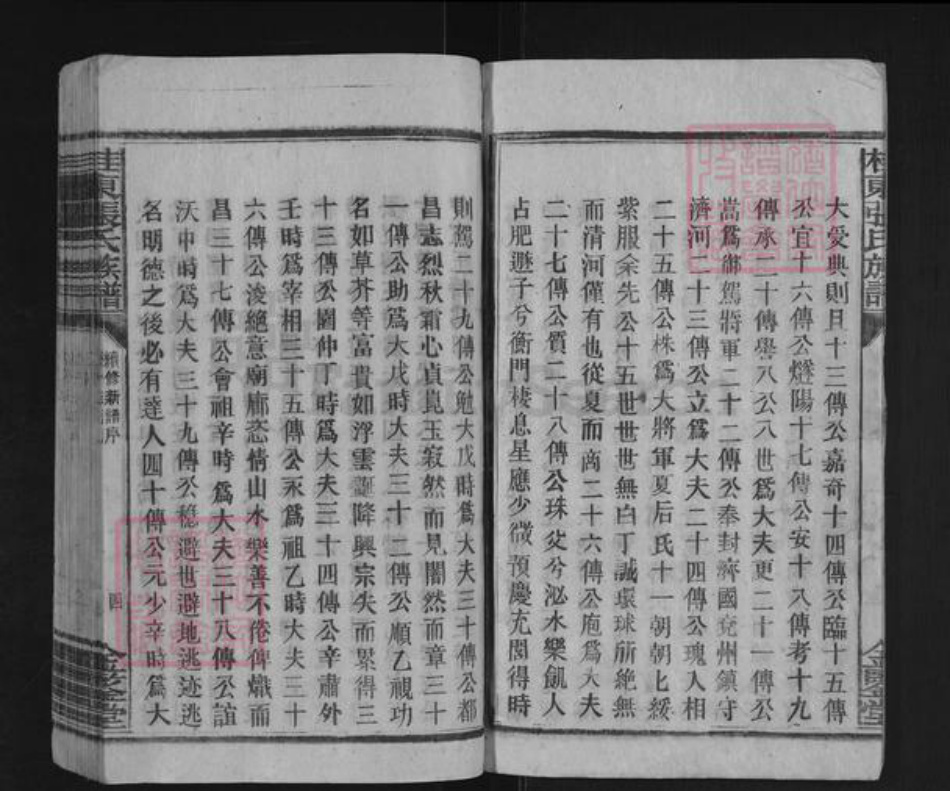 大受典則且十三傳公嘉奇十四傳公臨十五傳
公宜十六傳公燧陽十七傳公安十八傳考十九
傳承二十傳譽八公八世爲大夫更二十一傳公
嵩爲御駕將軍二十二傳公奉封濟國兗州鎮守
濟河二十三傳公立爲大夫二十四傳公瑰入相
二十五傳公株爲大將軍夏后氏十一朝朝匕綬
紫服余先公十五世世世無白丁誠環球所絶無
而清河僅有也從夏而商二十六傳公庖爲大夫
二十七傳公質二十八傳公珠父兮泌水樂飢人
占肥遯子兮衡門棲息星應少微預慶充閭得時
則駕二十九傳公勉大戊時爲大夫三十傳公都
昌志烈秋霜心貞崑玉寂然而見闇然而章三十
一傳公助爲大戊時大夫三十二傳公順乙視功
名如草芥等富貴如浮雲誕降興宗失而累得三
十三傳公圖仲丁時爲大夫三十四傳公辛肅外
壬時爲宰相三十五傳公永爲祖乙時大夫三十
六傳公浚絶意廟廊恣情山水樂善不倦俾熾而
昌三十七傳公會祖辛時爲大夫三十八傳公誼
沃甲時爲大夫三十九傳公穩避世避地逃迹逃
名明德之後必有達人四十傳公元少辛時爲大
桂東張氏族譜
續修新譜序
四
金鑒堂